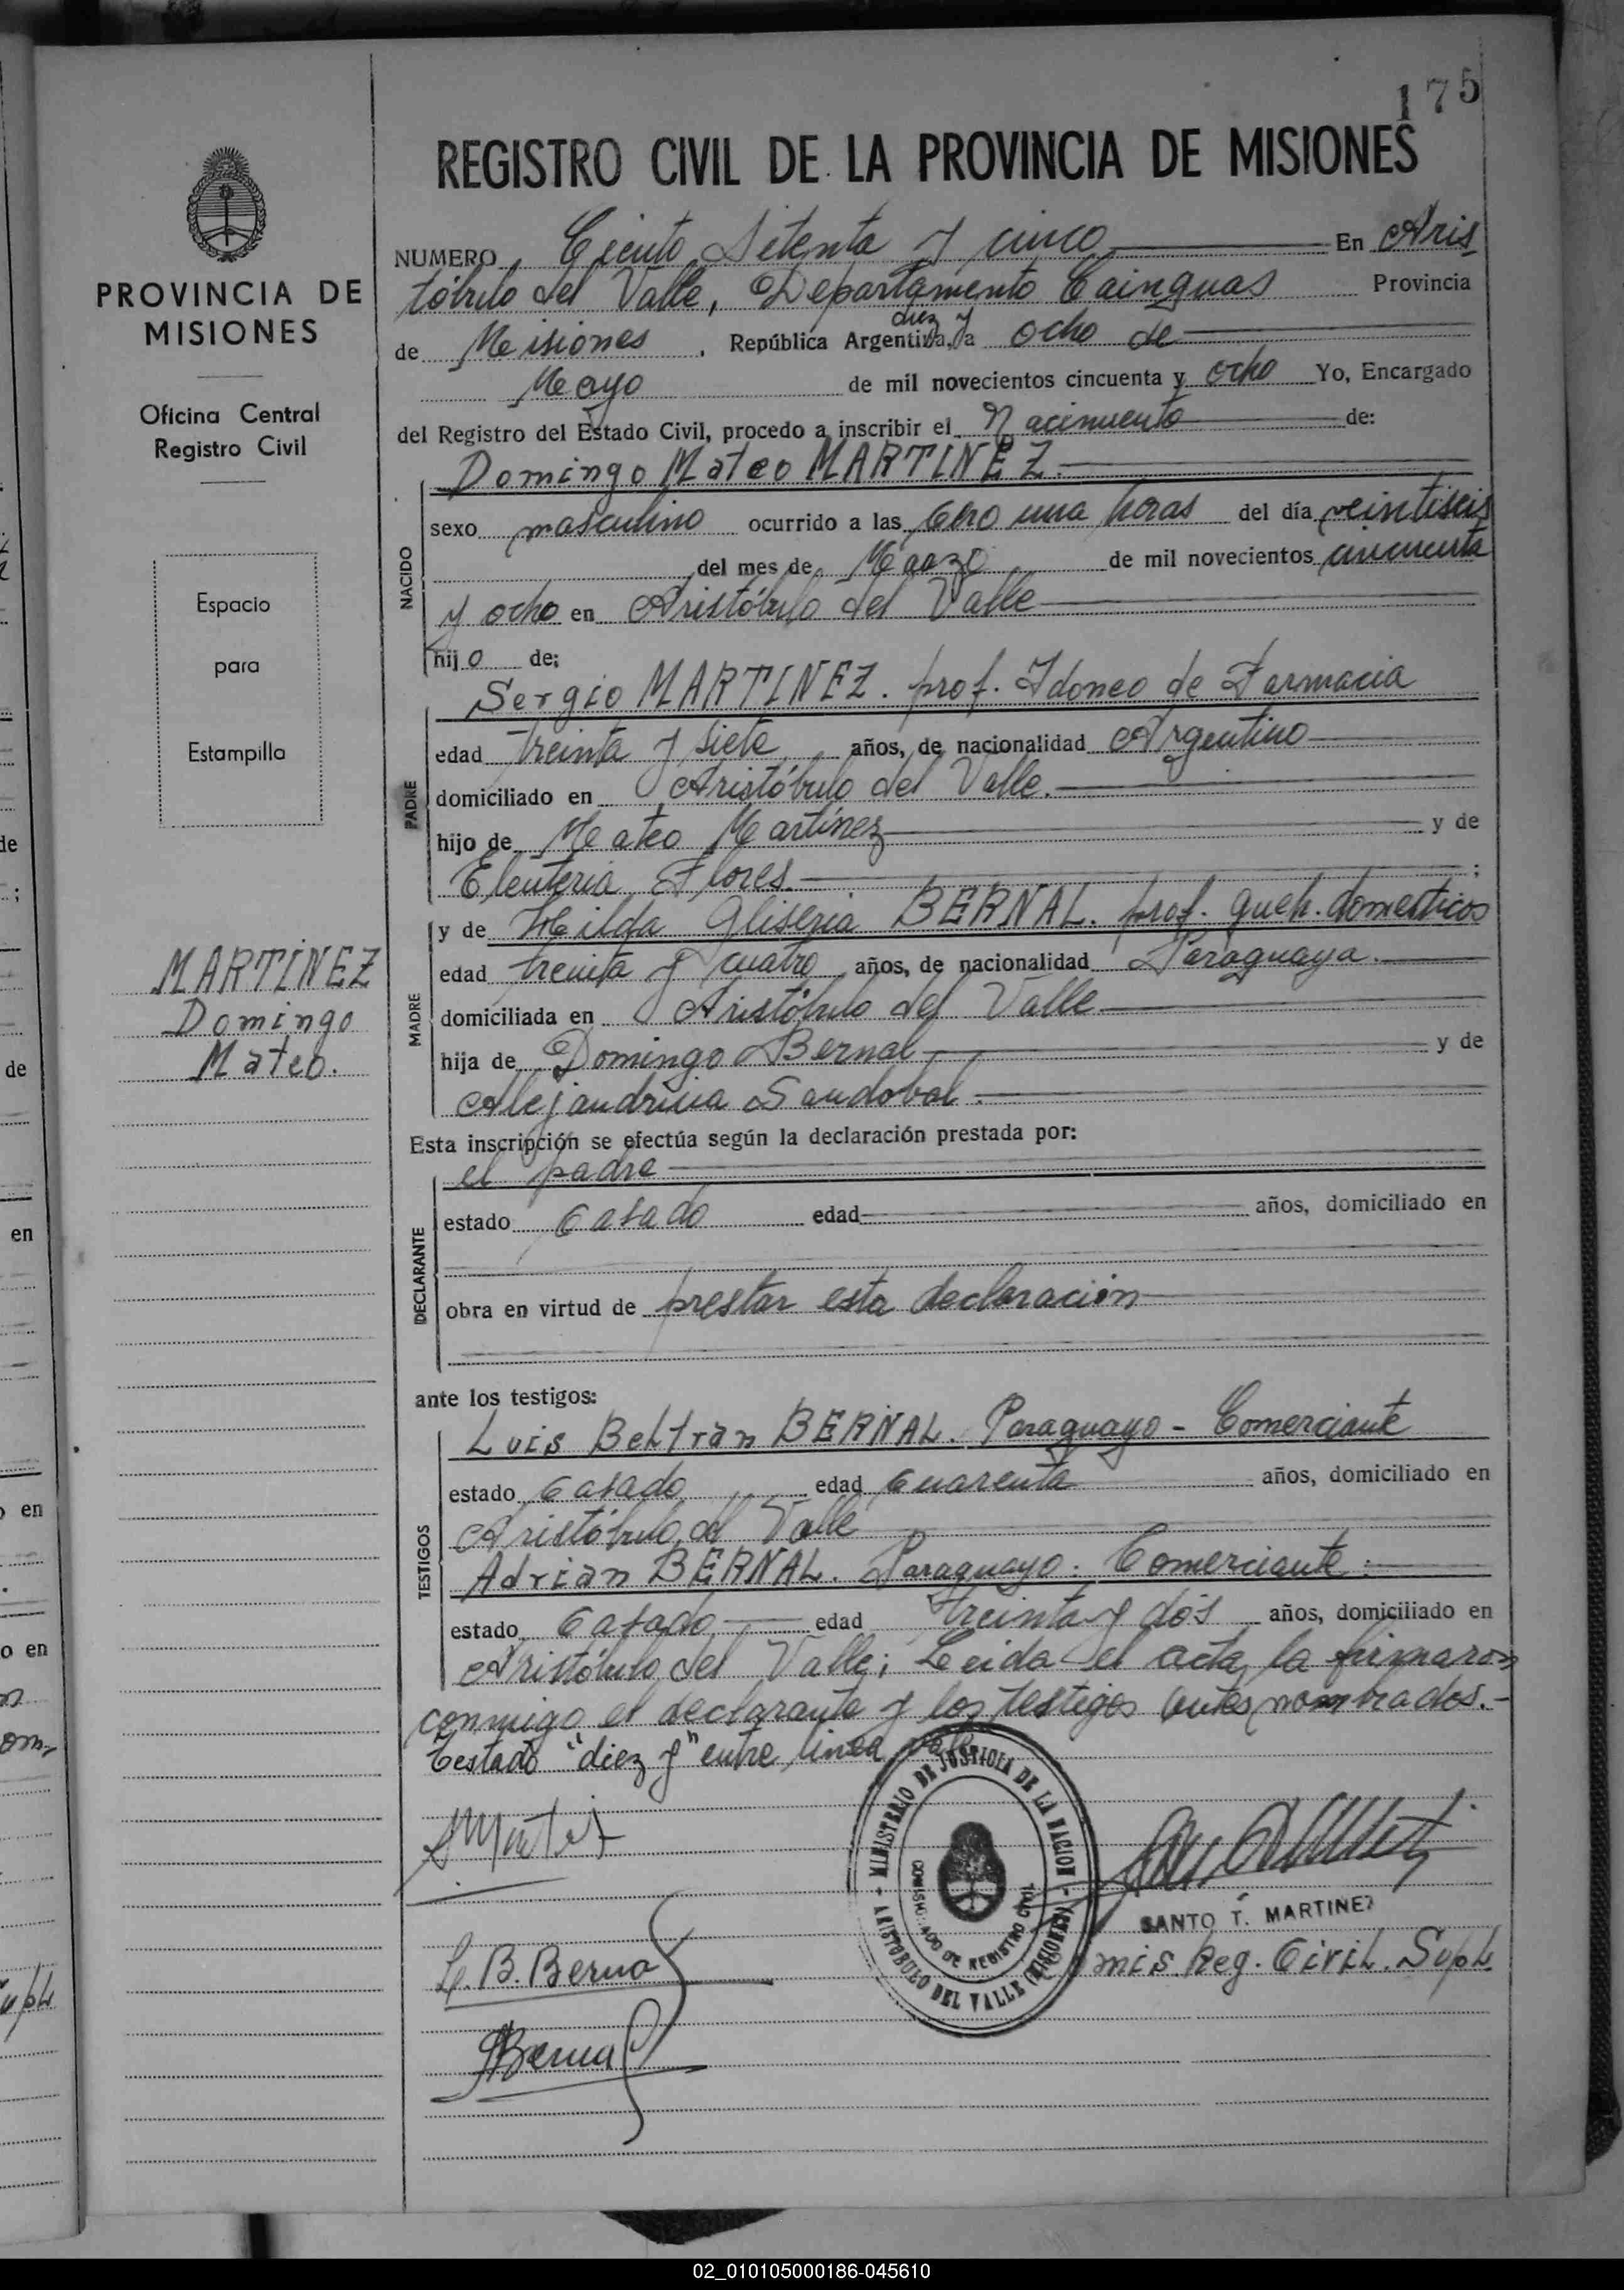 175
REGISTRO CIVIL DE LA PROVINCIA DE MISIONES
PROVINCIA DE
MISIONES
Oficina Central
Registro Civil
Espacio
para
Estampilla
MARTINEZ
Domingo
Mateo.
NUMERO Ciento Setenta y cinco En Aris
tóbulo del Valle, Departamento Cainguas Provincia
diez y
de Misiones, República Argentina, a ocho de
Mayo de mil novecientos cincuenta y ocho Yo, Encargado
del Registro del Estado Civil, procedo a inscribir el Nacimiento de:
Domingo Mateo MARTINEZ.
NACIDO
sexo masculino ocurrido a las cero una horas del día veintiseis
del mes de Marzo de mil novecientos cincuenta
y ocho en Aristóbulo del Valle
hijo de:
Sergio MARTINEZ. prof. Idoneo de Farmacia
PADRE
edad treinta y siete años, de nacionalidad Argentino
domiciliado en Aristóbulo del Valle.
hijo de Mateo Martínez y de
Eleuteria Flores. ;
MADRE
y de Hilda Gliseria BERNAL. prof. queh. domesticos
edad treinta y cuatro años, de nacionalidad Paraguaya.
domiciliada en Aristóbulo del Valle
hija de Domingo Bernal y de
Alejandrina Sandoval.
Esta inscripción se efectúa según la declaración prestada por:
el padre
DECLARANTE
estado Casado edad años, domiciliado en
obra en virtud de prestar esta declaración
ante los testigos:
Luis Beltrán BERNAL. Paraguayo - Comerciante
TESTIGOS
estado Casado edad Cuarenta años, domiciliado en
Aristóbulo del Valle
Adrián BERNAL. Paraguayo. Comerciante.
estado Casado edad treinta y dós años, domiciliado en
Aristóbulo del Valle; Leida el acta, la firmaron
conmigo el declarante y los testigos antes nombrados.-
Testado "diez y" entre linea vale
MINISTERIO DE JUSTICIA DE LA NACION
COMISIONADO DE REGISTRO CIVIL
ARISTOBULO DEL VALLE (MISIONES)
SANTO T. MARTINEZ
mis. Reg. Civil. Supl.
L. B. Bernal
ABernal
02_010105000186-045610